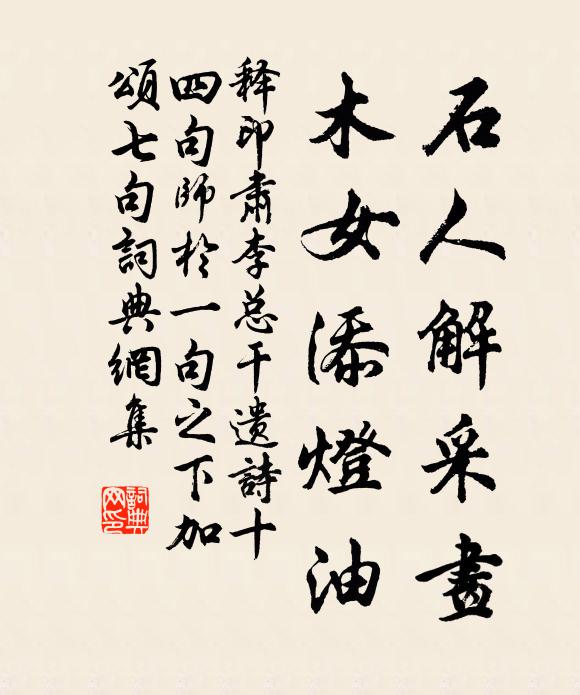 石人解采畫
木女添燈油
释印肅李总干遺詩十
四句師於一句之下加
頌七句詞典網集
詞典网印